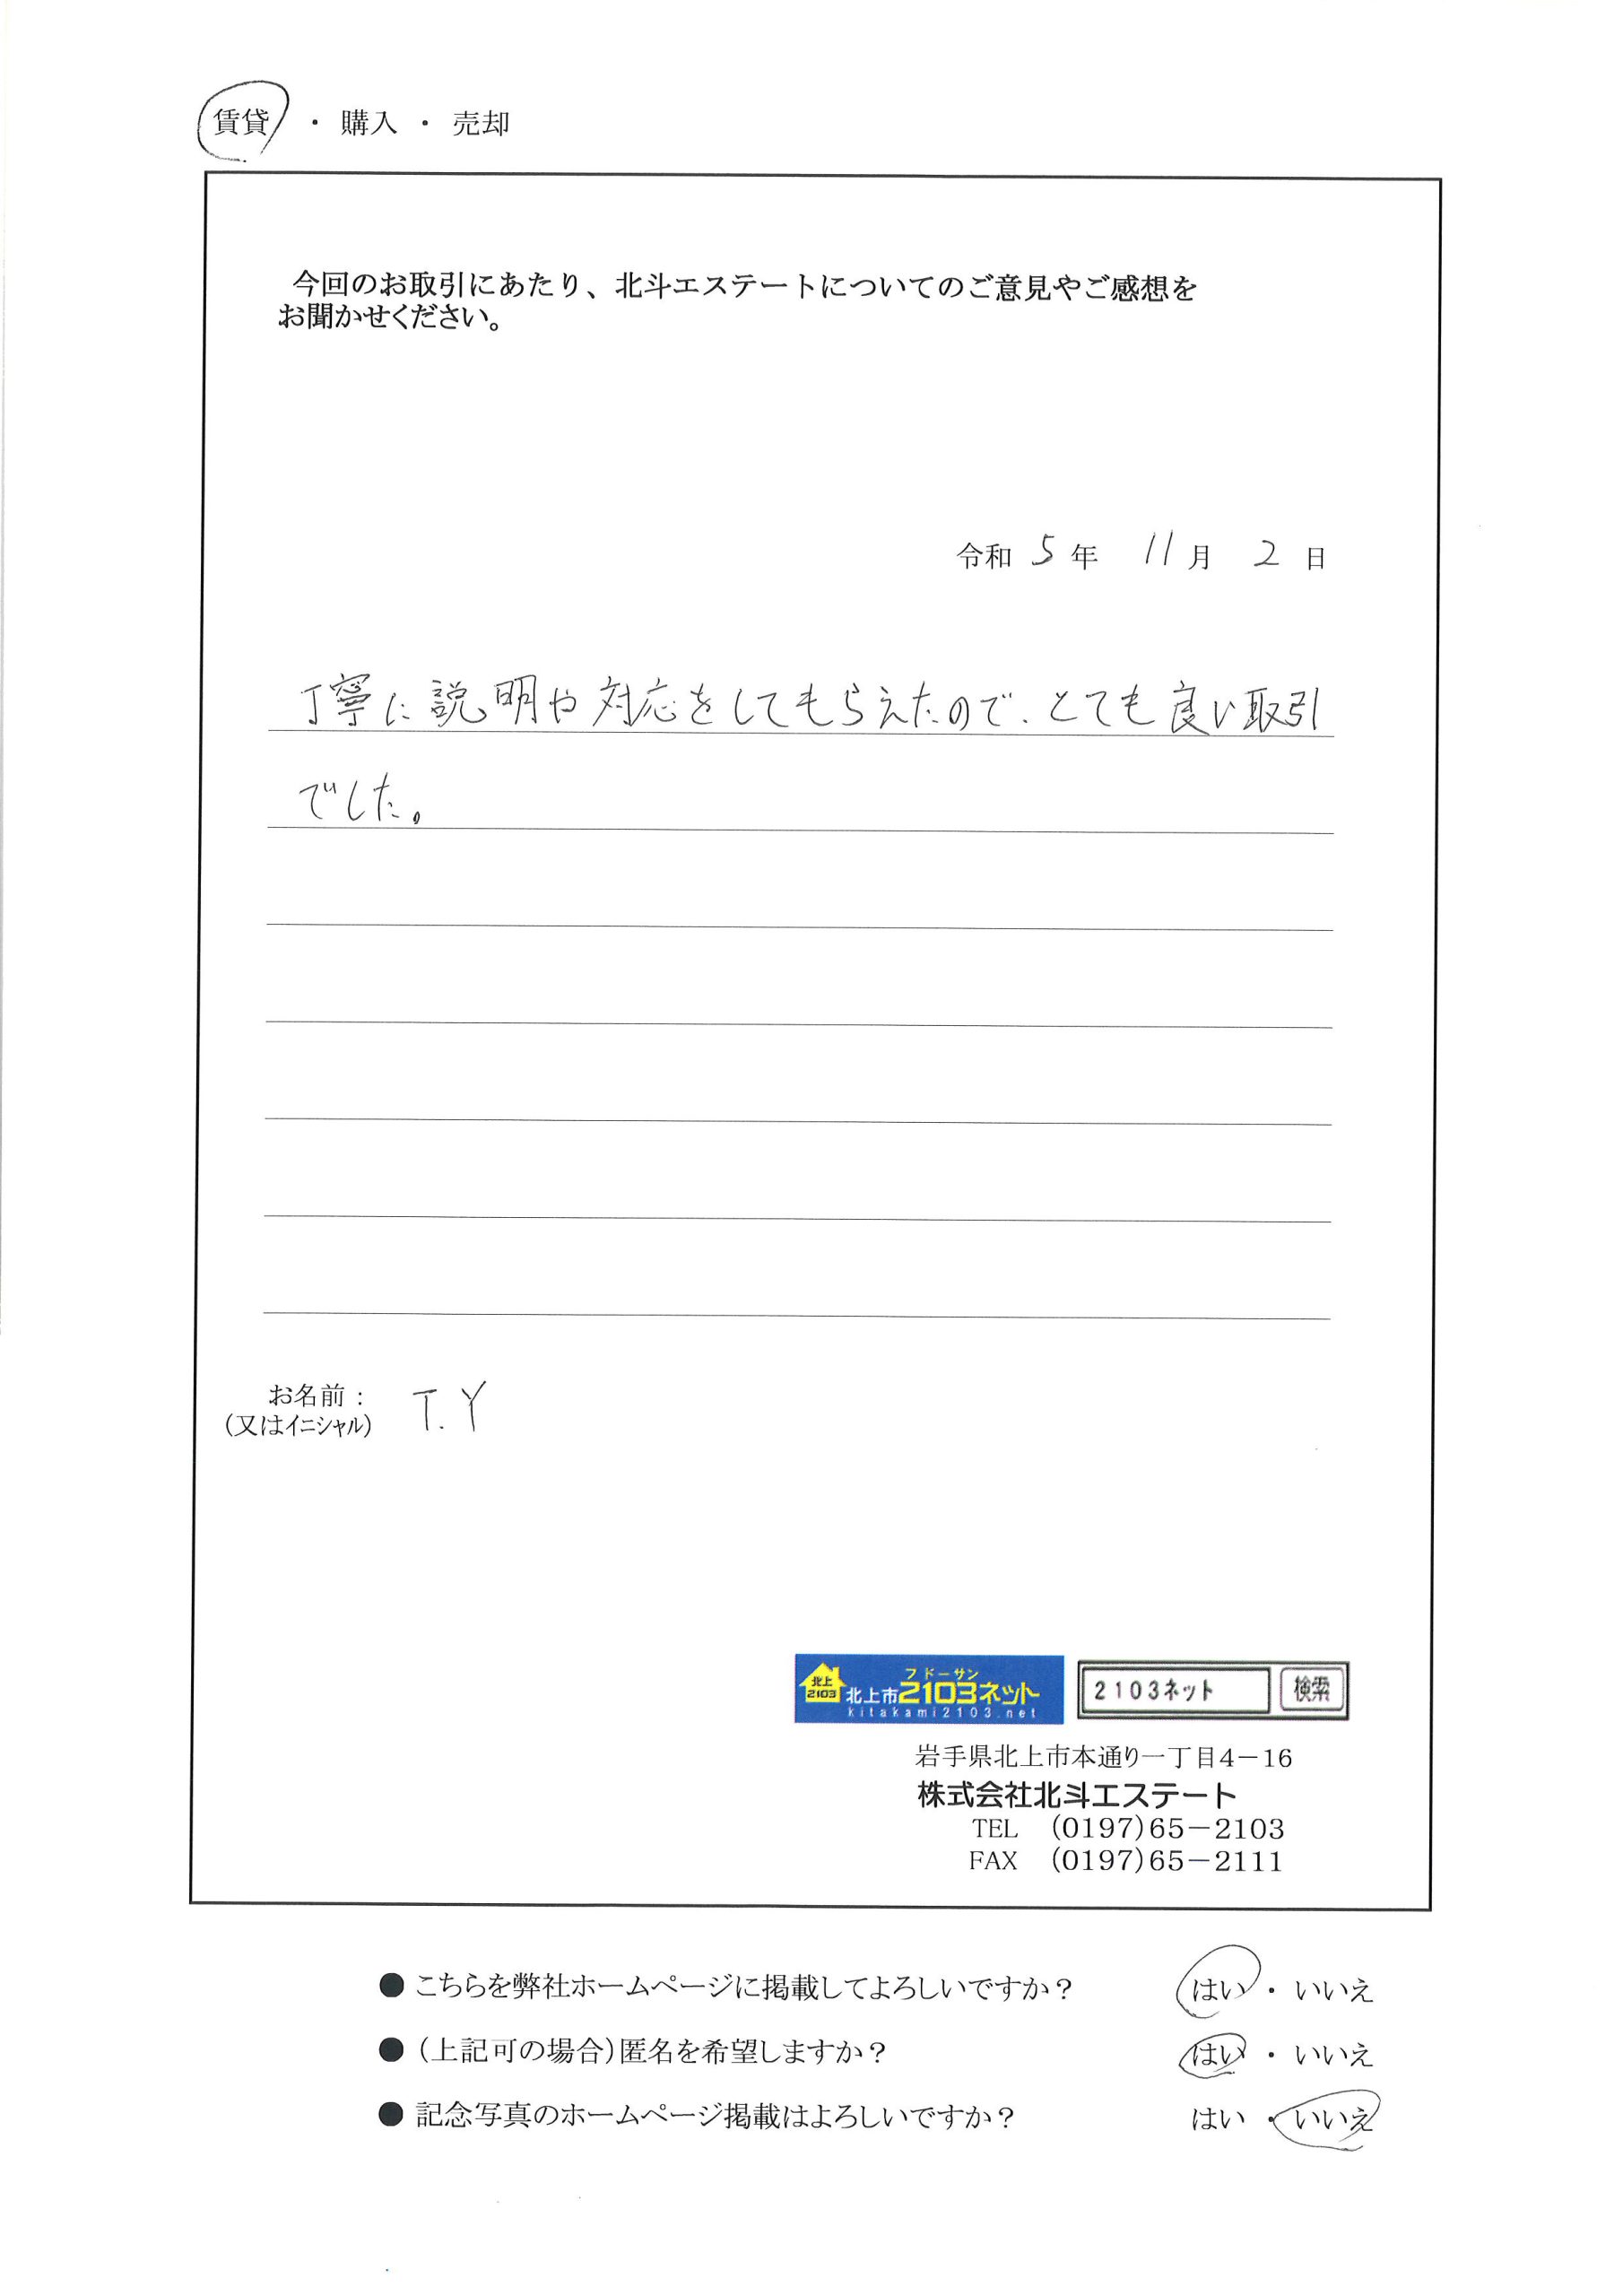 賃貸 ・ 購入 ・ 売却
今回のお取引にあたり、北斗エステートについてのご意見やご感想を
お聞かせください。
令和 5 年 11 月 2 日
丁寧に説明や対応をしてもらえたので、とても良い取引
でした。
お名前：
(又はイニシャル) T.Y
フドーサン
北上
2103
北上市2103ネット
kitakami2103.net
2103ネット 検索
岩手県北上市本通り一丁目4－16
株式会社北斗エステート
TEL (0197)65－2103
FAX (0197)65－2111
● こちらを弊社ホームページに掲載してよろしいですか？ はい ・ いいえ
● (上記可の場合)匿名を希望しますか？ はい ・ いいえ
● 記念写真のホームページ掲載はよろしいですか？ はい ・ いいえ